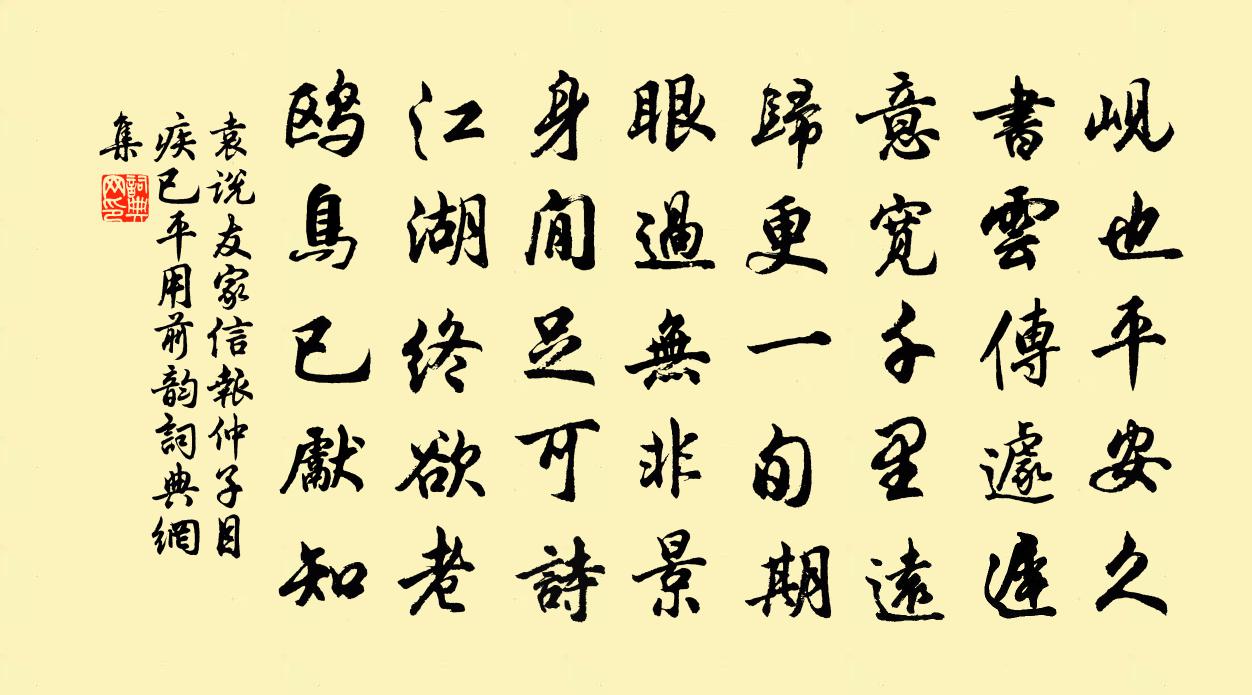 峴也平安久
書雲傳遽遲
意寬千里遠
歸更一旬期
眼過無非景
身閒足可詩
江湖終欲老
鷗鳥已獻知
袁説友家信報仲子目
疾已平用前韵詞典網
集
詞典網印